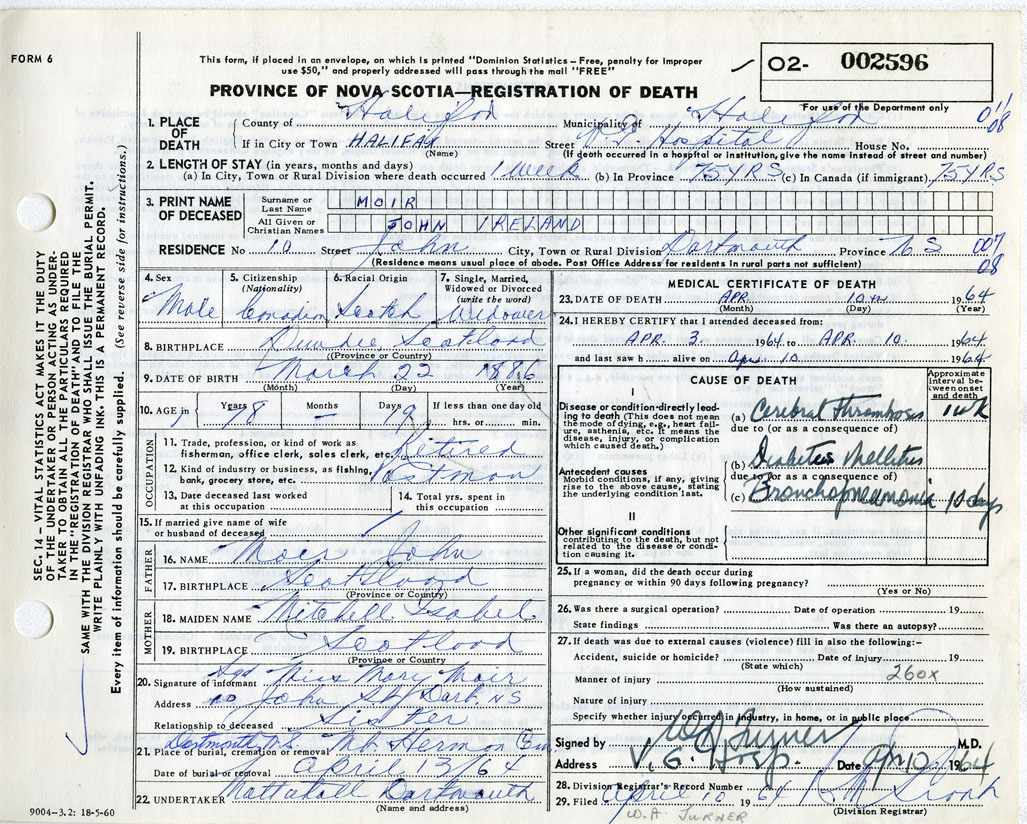 FORM 6
This form, if placed in an envelope, on which is printed "Dominion Statistics - Free, penalty for improper
use $50," and properly addressed will pass through the mail "FREE"
O2- 002596
For use of the Department only
PROVINCE OF NOVA SCOTIA—REGISTRATION OF DEATH
1. PLACE OF DEATH
County of Halifax Municipality of Halifax 08
If in City or Town HALIFAX Street V.G. Hospital House No.
(Name) (If death occurred in a hospital or institution, give the name instead of street and number)
2. LENGTH OF STAY (in years, months and days)
(a) In City, Town or Rural Division where death occurred 1 week (b) In Province 75 YRS (c) In Canada (if immigrant) 75 YRS
3. PRINT NAME OF DECEASED
Surname or Last Name MOIR
All Given or Christian Names JOHN IRELAND
RESIDENCE No 10 Street John City, Town or Rural Division Dartmouth Province N S 007
08
(Residence means usual place of abode. Post Office Address for residents in rural parts not sufficient)
4. Sex Male
5. Citizenship (Nationality) Canadian
6. Racial Origin Scotch
7. Single, Married, Widowed or Divorced (write the word) Widower
8. BIRTHPLACE Dundee Scotland
(Province or Country)
9. DATE OF BIRTH March 22 1886
(Month) (Day) (Year)
10. AGE in Years 78 Months - Days 19 If less than one day old
hrs. or min.
OCCUPATION
11. Trade, profession, or kind of work as
fisherman, office clerk, sales clerk, etc. Retired
12. Kind of industry or business, as fishing,
bank, grocery store, etc. Postman
13. Date deceased last worked
at this occupation
14. Total yrs. spent in
this occupation
15. If married give name of wife
or husband of deceased
FATHER
16. NAME Moir John
17. BIRTHPLACE Scotland
(Province or Country)
MOTHER
18. MAIDEN NAME Mitchell Isabel
19. BIRTHPLACE Scotland
Province or Country
20. Signature of informant Sgd Miss Mary Moir
Address 10 John St Dart. NS
Relationship to deceased Sister
21. Place of burial, cremation or removal Dartmouth N.S. Mt. Hermon Cem
Date of burial or removal April 13/64
22. UNDERTAKER Mattatall Dartmouth
(Name and address)
9004—3.2: 18-5-60
MEDICAL CERTIFICATE OF DEATH
23. DATE OF DEATH APR. 10th 1964
(Month) (Day) (Year)
24. I HEREBY CERTIFY that I attended deceased from:
APR. 3 1964 to APR. 10. 1964
and last saw h alive on Apr. 10 1964
CAUSE OF DEATH
Approximate interval between onset and death
I
Disease or condition directly leading to death (This does not mean
the mode of dying, e.g., heart failure, asthenia, etc. It means the
disease, injury, or complication
which caused death.)
(a) Cerebral Thrombosis 1 wk
due to (or as a consequence of)
Antecedent causes
Morbid conditions, if any, giving
rise to the above cause, stating
the underlying condition last.
(b) Diabetes Mellitus
due to (or as a consequence of)
(c) Bronchopneumonia 10 days
II
Other significant conditions
contributing to the death, but not
related to the disease or condition causing it.
25. If a woman, did the death occur during
pregnancy or within 90 days following pregnancy?
(Yes or No)
26. Was there a surgical operation? Date of operation 19
State findings Was there an autopsy?
27. If death was due to external causes (violence) fill in also the following:—
Accident, suicide or homicide? Date of injury 19
(State which)
Manner of injury 260X
(How sustained)
Nature of injury
Specify whether injury occurred in industry, in home, or in public place
Signed by WA Turner M.D.
Address V.G. Hosp. Date Apr 10 1964
28. Division Registrar's Record Number
29. Filed April 10 1964
(Division Registrar)
W.A. TURNER
SEC. 14 – VITAL STATISTICS ACT MAKES IT THE DUTY
OF THE UNDERTAKER OR PERSON ACTING AS UNDERTAKER TO OBTAIN ALL THE PARTICULARS REQUIRED
IN THE "REGISTRATION OF DEATH" AND TO FILE THE
SAME WITH THE DIVISION REGISTRAR WHO SHALL ISSUE THE BURIAL PERMIT.
WRITE PLAINLY WITH UNFADING INK. THIS IS A PERMANENT RECORD.
Every item of information should be carefully supplied. (See reverse side for instructions.)